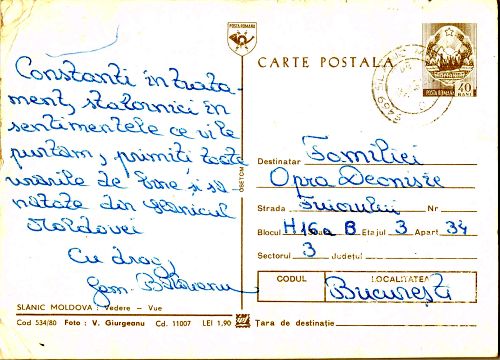 POSTA ROMANA
CARTE POSTALA
POSTA ROMANA
40
BANI
Constanti in trata-
ment, statornici in
sentimentele ce vi le
purtam, primiti toate
urarile de bine si sa-
natate din
Moldovei
Cu drag,
Fam.
Destinatar Familiei
Opra Deonisie
Strada Fuiorului Nr
Blocul H 16a Scara B Etajul 3 Apart 34
Sectorul 3 Județul
CODUL LOCALITATEA
București
SLĂNIC MOLDOVA : Vedere – Vue
Cod 534/80 Foto : V. Giurgeanu Cd. 11007 LEI 1,90
Tara de destinație